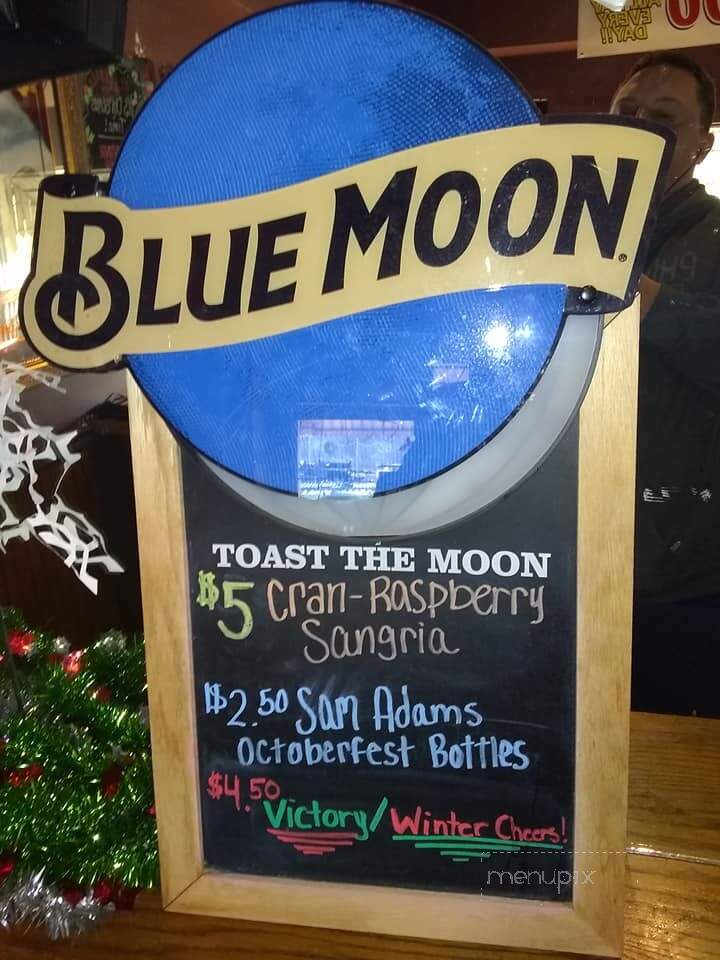 EVERY
DAY!!
BLUE MOON
TOAST THE MOON
$5 Cran-Raspberry
Sangria
$2.50 Sam Adams
Octoberfest Bottles
$4.50
Victory/Winter Cheers!
menupix